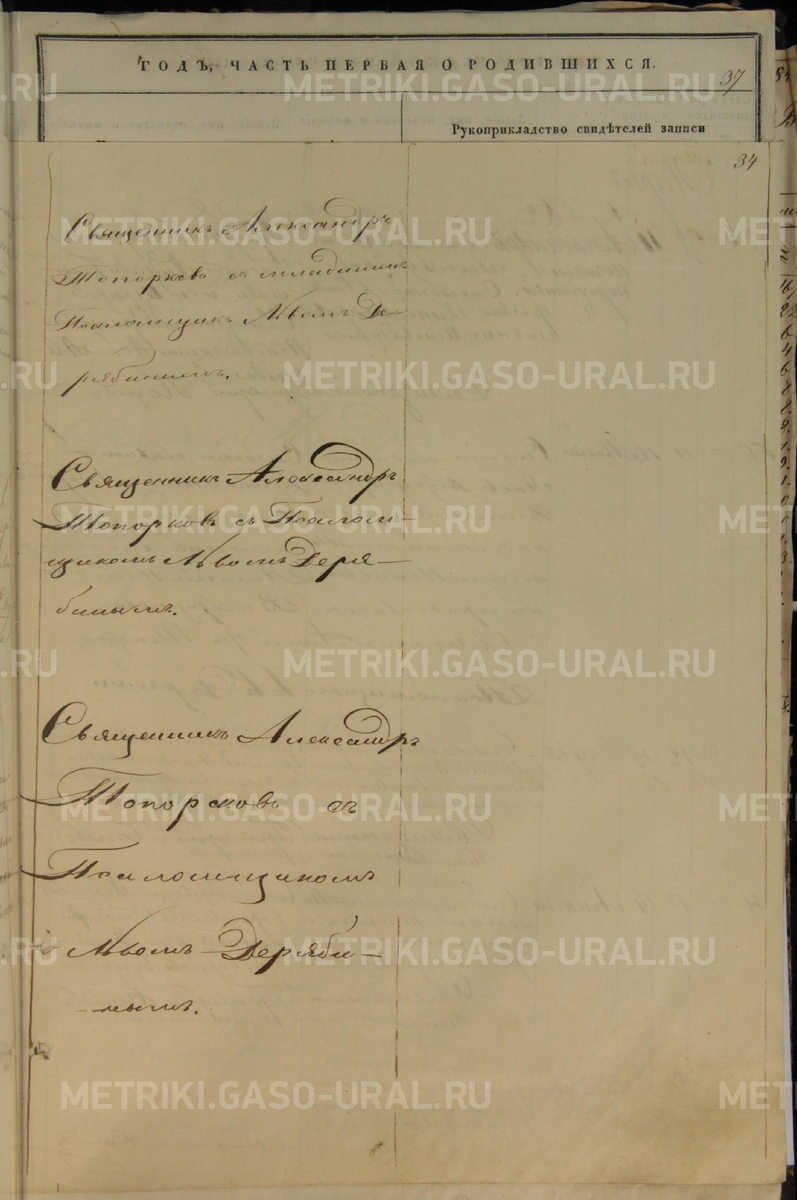 ГОДЪ, ЧАСТЬ ПЕРВАЯ О РОДИВШИХСЯ.
37
Рукоприкладство свидѣтелей записи
34
Священникъ Александръ
Топорковъ съ младшимъ
Псаломщик Львомъ Де-
рябинымъ.
Священникъ Александръ
Топорковъ съ Псалом-
щикомъ Львомъ Деря-
бинымъ.
Священникъ Александръ
Топорковъ съ
Псаломщикомъ
Львомъ Деряби-
нымъ.
METRIKI.GASO-URAL.RU